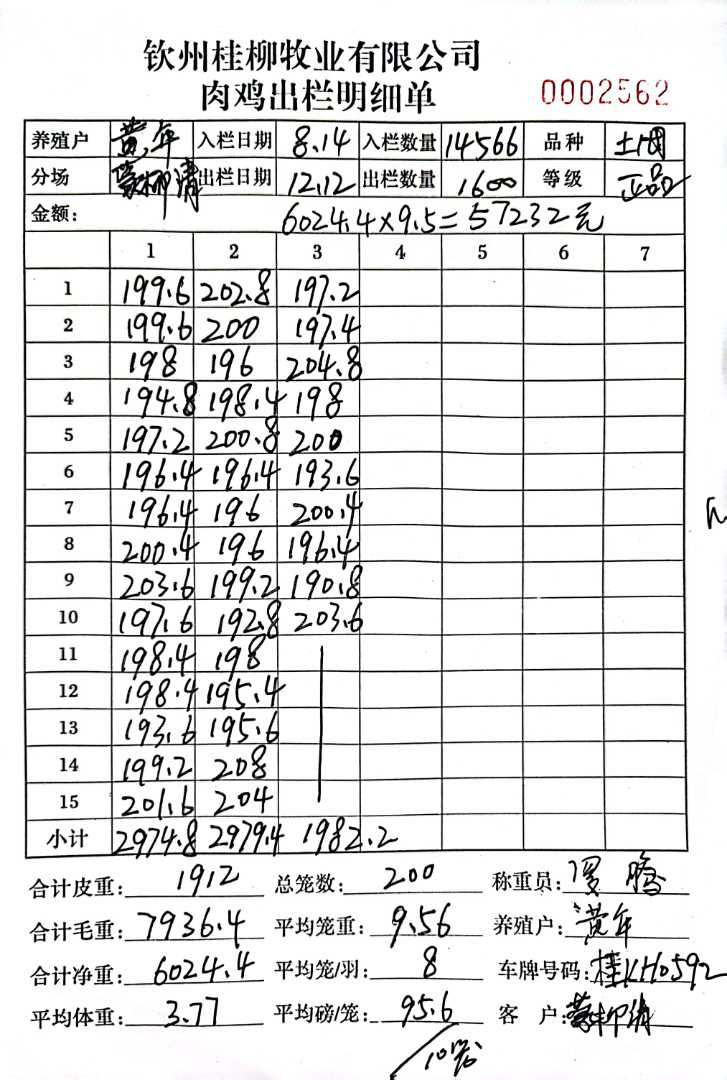 钦州桂柳牧业有限公司
肉鸡出栏明细单 0002562
养殖户 黄年 入栏日期 8.14 入栏数量 14566 品种
分场 出栏日期 12.12 出栏数量 1600 等级 正品
金额: 6024.4×9.5=57232元
1 2 3 4 5 6 7
1 199.6 202.8 197.2
2 199.6 200 197.4
3 198 196 204.8
4 194.8 198.4 198
5 197.2 200.8 200
6 196.4 196.4 193.6
7 196.4 196 200.4
8 200.4 196 196.4
9 203.6 199.2 190.8
10 197.6 192.8 203.6
11 198.4 198
12 198.4 195.4
13 193.6 195.6
14 199.2 208
15 201.6 204
小计 2974.8 2979.4 1982.2
合计皮重: 1912 总笼数: 200 称重员:
合计毛重: 7936.4 平均笼重: 9.56 养殖户: 黄年
合计净重: 6024.4 平均笼/羽: 8 车牌号码: 桂KH0592
平均体重: 3.77 平均磅/笼: 95.6 客 户: